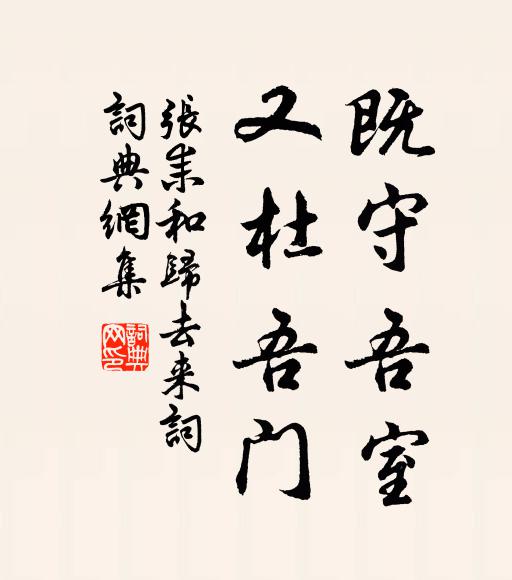 既守吾室
又杜吾门
張耒和歸去来詞
詞典網集
詞典网印